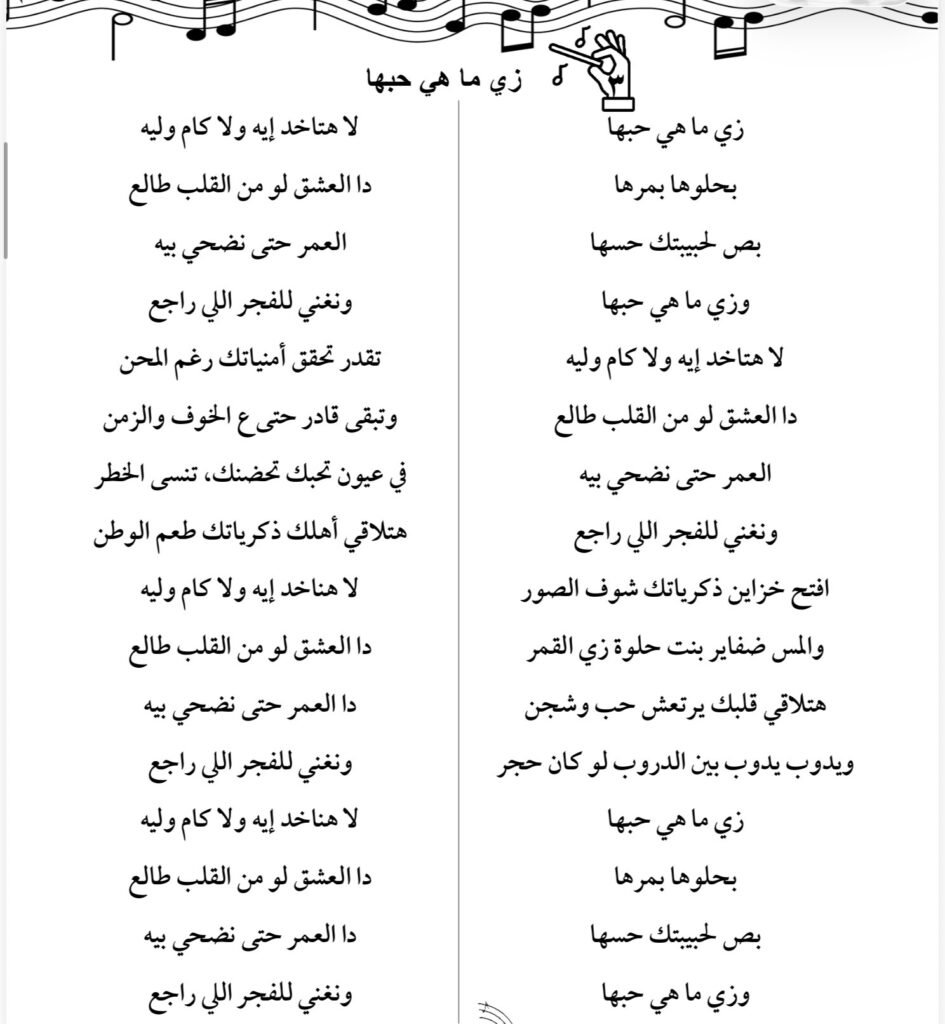 زي ما هي حبها
٣
زي ما هي حبها
بحلوها بمرها
بص لحبيبتك حسها
وزي ما هي حبها
لا هتاخد إيه ولا كام وليه
دا العشق لو من القلب طالع
العمر حتى نضحي بيه
ونغني للفجر اللي راجع
افتح خزاين ذكرياتك شوف الصور
والمس ضفاير بنت حلوة زي القمر
هتلاقي قلبك يرتعش حب وشجن
ويدوب يدوب بين الدروب لو كان حجر
زي ما هي حبها
بحلوها بمرها
بص لحبيبتك حسها
وزي ما هي حبها
لا هتاخد إيه ولا كام وليه
دا العشق لو من القلب طالع
العمر حتى نضحي بيه
ونغني للفجر اللي راجع
تقدر تحقق أمنياتك رغم المحن
وتبقى قادر حتى ع الخوف والزمن
في عيون تحبك تحضنك، تنسى الخطر
هتلاقي أهلك ذكرياتك طعم الوطن
لا هناخد إيه ولا كام وليه
دا العشق لو من القلب طالع
دا العمر حتى نضحي بيه
ونغني للفجر اللي راجع
لا هناخد إيه ولا كام وليه
دا العشق لو من القلب طالع
دا العمر حتى نضحي بيه
ونغني للفجر اللي راجع